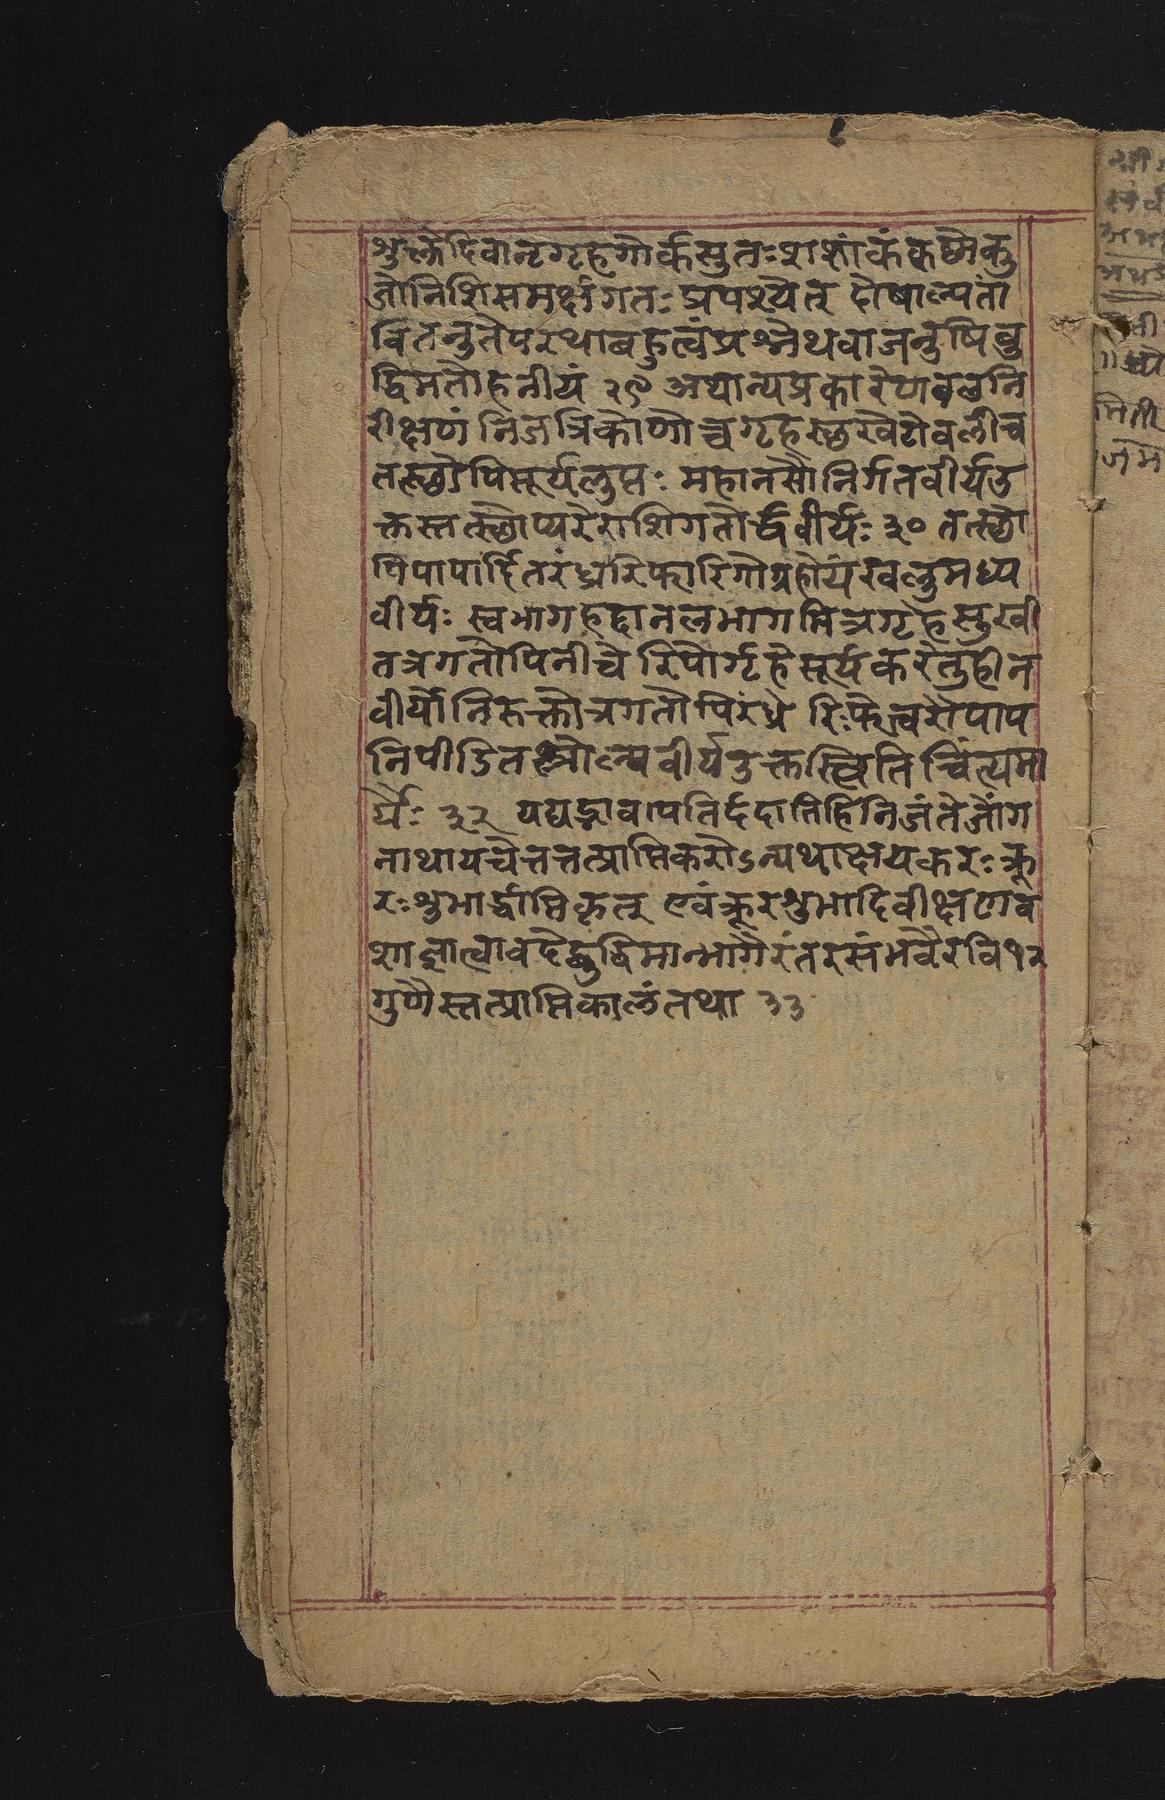 शुक्लेदिवानृगृहगोर्कसुतःशशांकंकृष्णेकु
जोनिशिसमर्क्षगतःप्रपश्येत् दोषाल्पतां
वितनुतेपरथाबहुत्वंप्रश्नेथवाजनुषिबु
द्धिमतोहनीयं २९ अथान्यप्रकारेणबलनि
रीक्षणं निजत्रिकोणोच्चगृहस्थखेटोवलीच
तत्स्थोपिसूर्यलुप्तः महानसौनिर्गतवीर्यउ
क्तस्ततत्स्थोप्यरेराशिगतोर्द्धवीर्यः ३० तत्स्थो
पिपापार्दितरंध्ररिफारिगोग्रहोयंखलुमध्य
वीर्यः स्वभागहद्दानलभागमित्रगृहेसुखी
तत्रगतोपिनीचे रिपोर्गृहेसूर्यकरेतुहीन
वीर्योनिरुक्तोत्रगतोपिरंध्रे रिःफेत्वरौपाप
निपीडित श्चोल्पवीर्यउक्तस्त्वितिचिंत्यमा
र्यैः ३२ यद्यद्भावपतिर्ददातिहिनिजंतेजोंग
नाथायचेत्तत्तत्प्राप्तिकरोऽन्यथाक्षयकरःक्रू
रःशुभार्द्धाप्तिकृत् एवंक्रूरशुभादिवीक्षणव
शाज्ज्ञात्वावदेद्बुद्धिमान्भागैरंतरसंभवैरवि१२
गुणैस्तत्प्राप्तिकालंतथा ३३